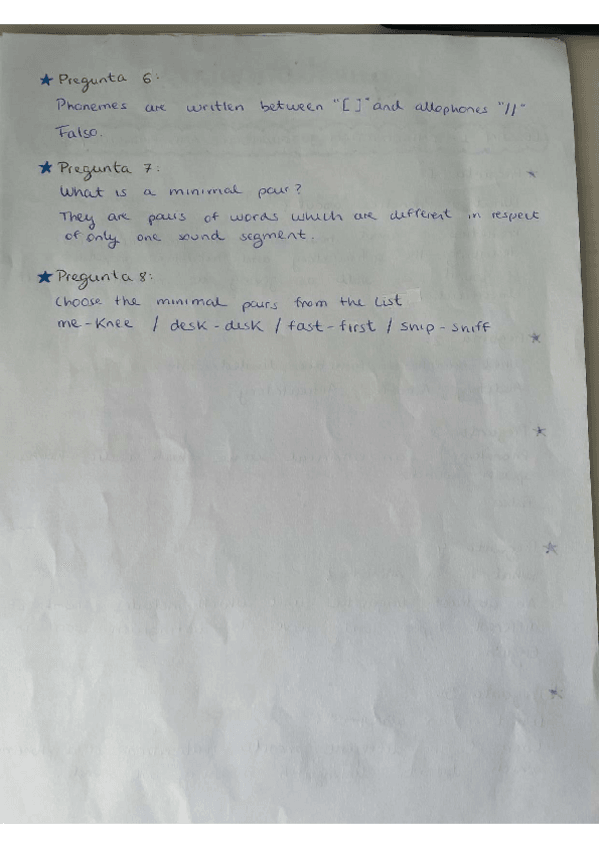 ★ Pregunta 6:
Phonemes are written between "[ ]" and allophones "//"
Falso.
★ Pregunta 7:
What is a minimal pair?
They are pairs of words which are different in respect
of only one sound segment.
★ Pregunta 8:
Choose the minimal pairs from the list
me-knee / desk-disk / fast-first / snip-sniff